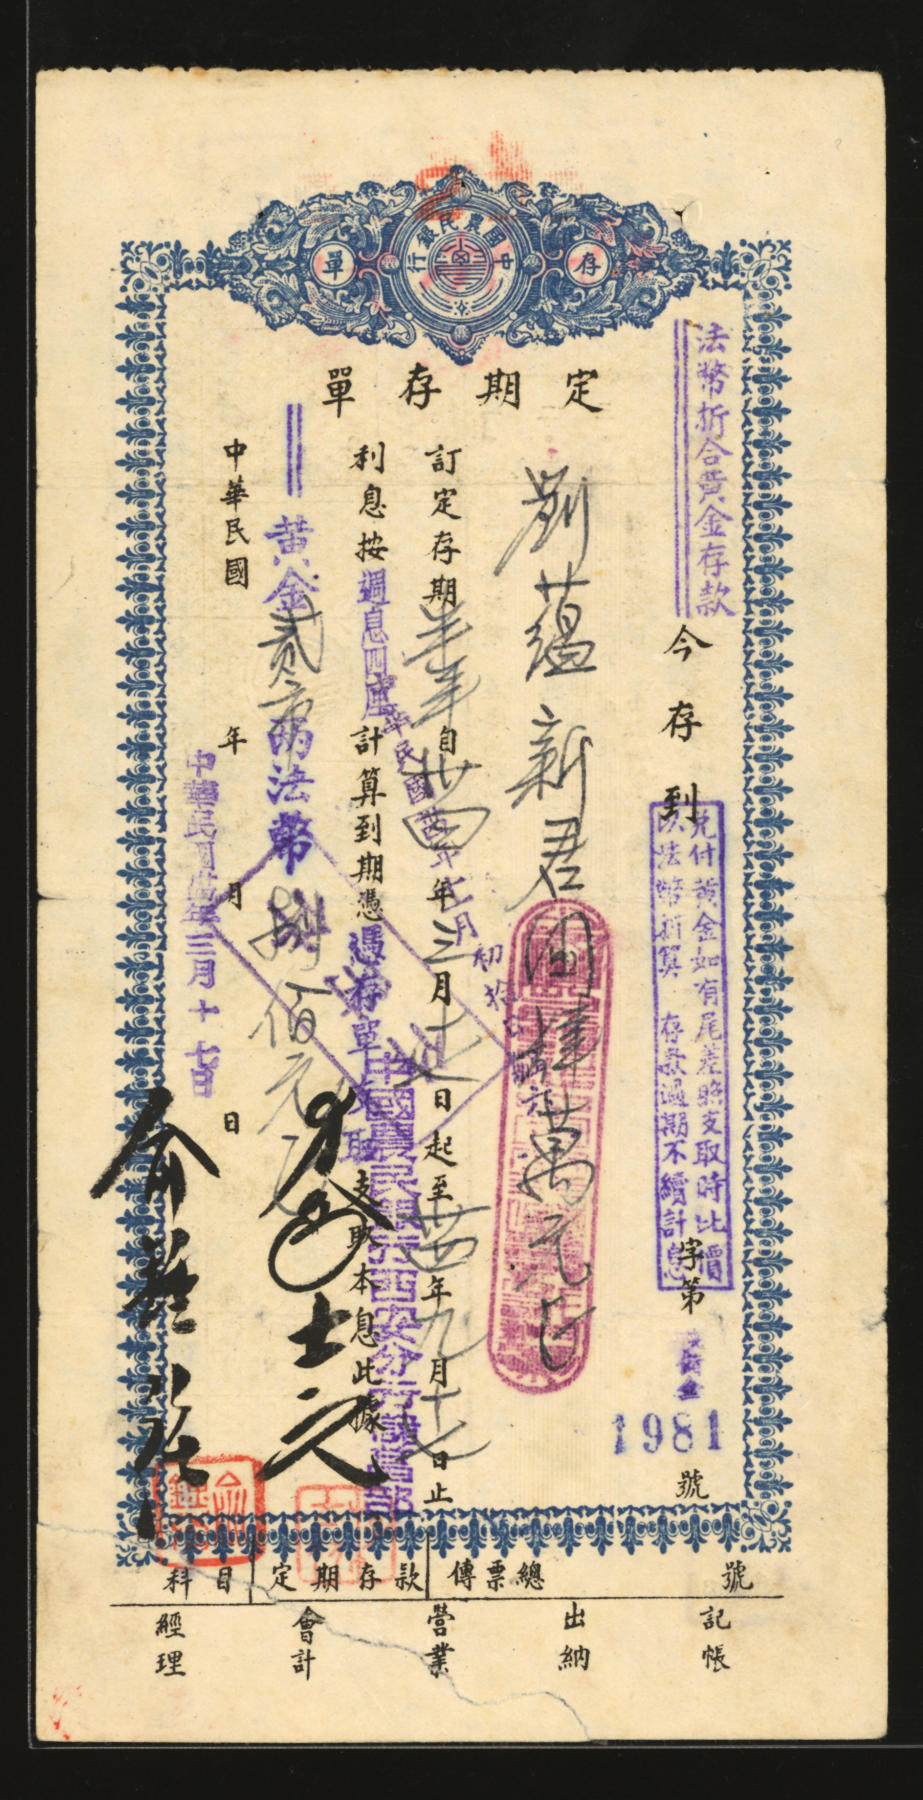 中國農民銀行
存單
定期存單
法幣折合黃金存款
今存到
字第
1981
號
兌付黃金如有尾差照支取時比價
以法幣折算 存款過期不續計息
劉蘊新君國幣
萬元正
訂定存期半年自卅四年三月十七日起至卅四年九月十七日止
利息按週息四厘計算到期憑
憑存單
支取本息此據
中國農民銀行西安分行儲蓄部
黃金貳市兩法幣捌佰元正
中華民國 年 月 日
中華民國卅四年三月十七日
科目
定期存款
傳票總
號
經理
會計
營業
出納
記帳